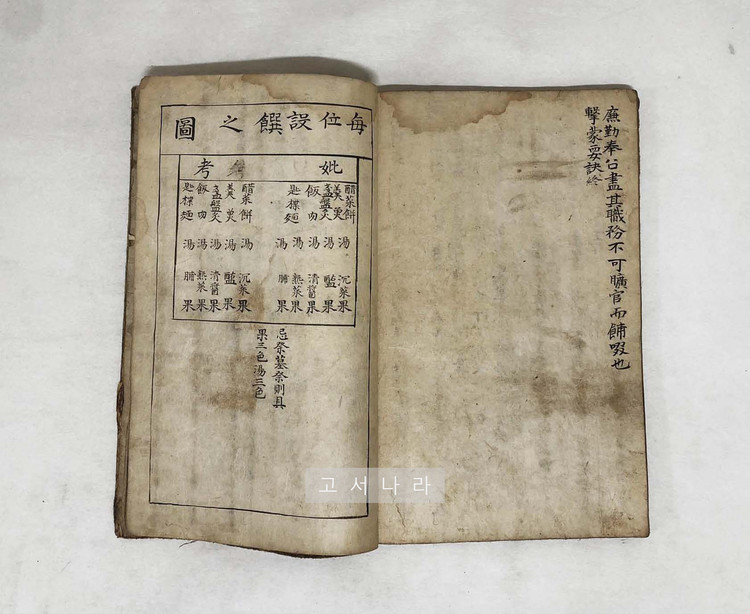 廉勤奉公盡其職務不可曠官而餔啜也
擊蒙要訣終
每位設饌之圖
妣 考
醋菜餅 湯 沉菜果
羹魚 湯 醢果
盞盤炙 湯 清醬果
飯肉 湯 熟菜果
匙楪麵 湯 脯果
醋菜餅 湯 沉菜果
羹魚 湯 醢果
盞盤炙 湯 清醬果
飯肉 湯 熟菜果
匙楪麵 湯 脯果
忌祭墓祭則具
果三色湯三色
고서나라